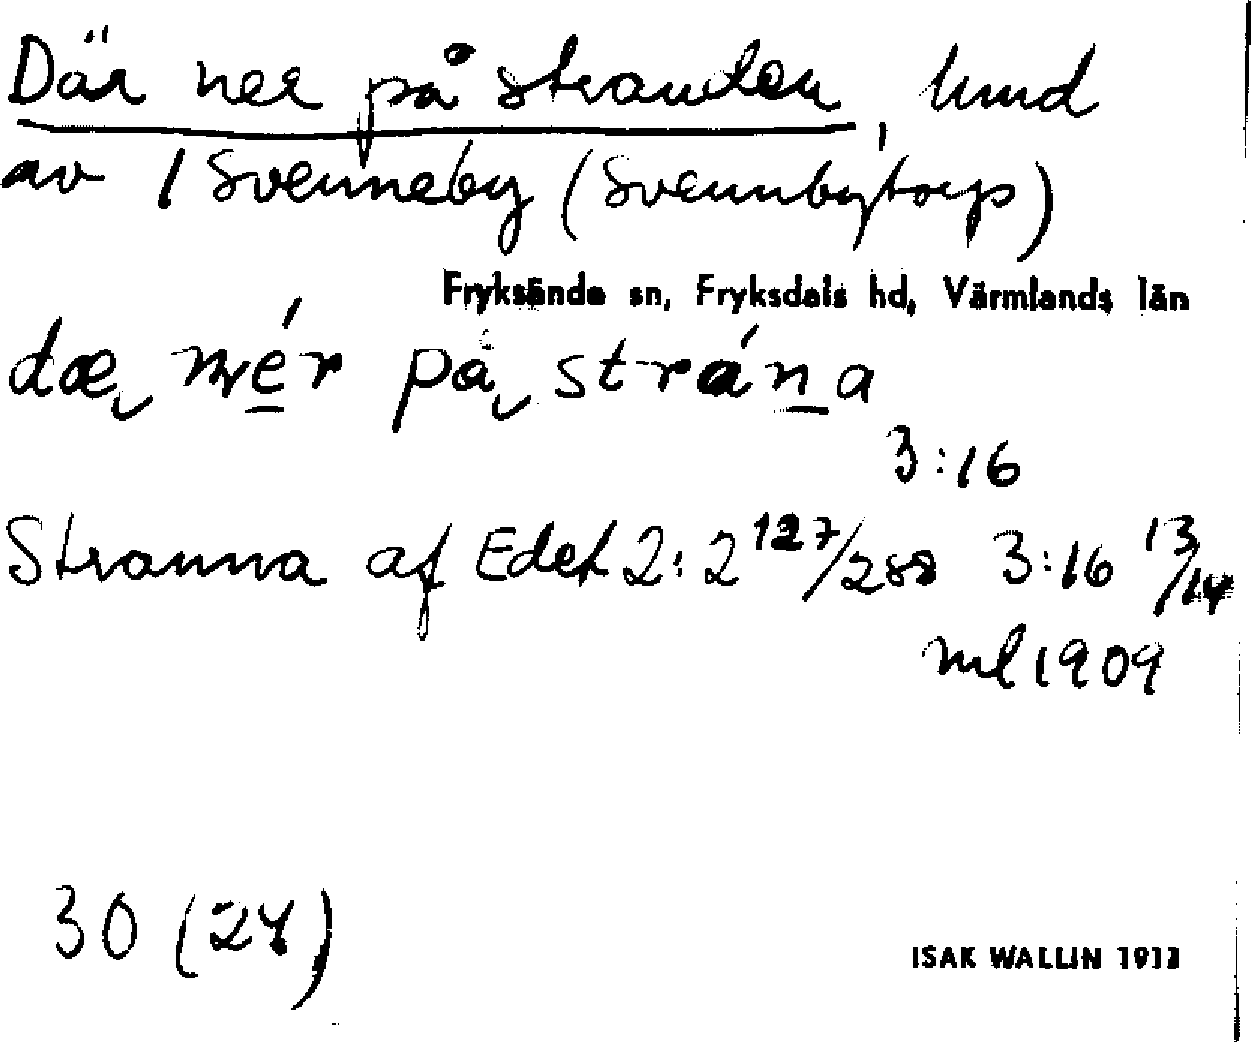 Där ner på stranden, lund
av 1 Svenneby (Svennbytorp)
Fryksände sn, Fryksdals hd, Värmlands län
dæ nér på strána
3:16
Stranna af Edet 2:2 127/288 3:16 13/14
ml 1909
30 (24)
ISAK WALLIN 1913